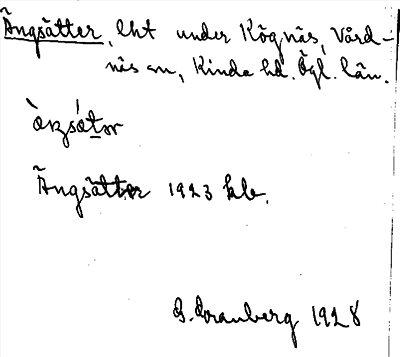 Ängsätter, lht under Kögnäs, Vård-
näs sn, Kinda hd. Ögl. län.
Ängsätter 1923 kb.
B. Granberg 1928